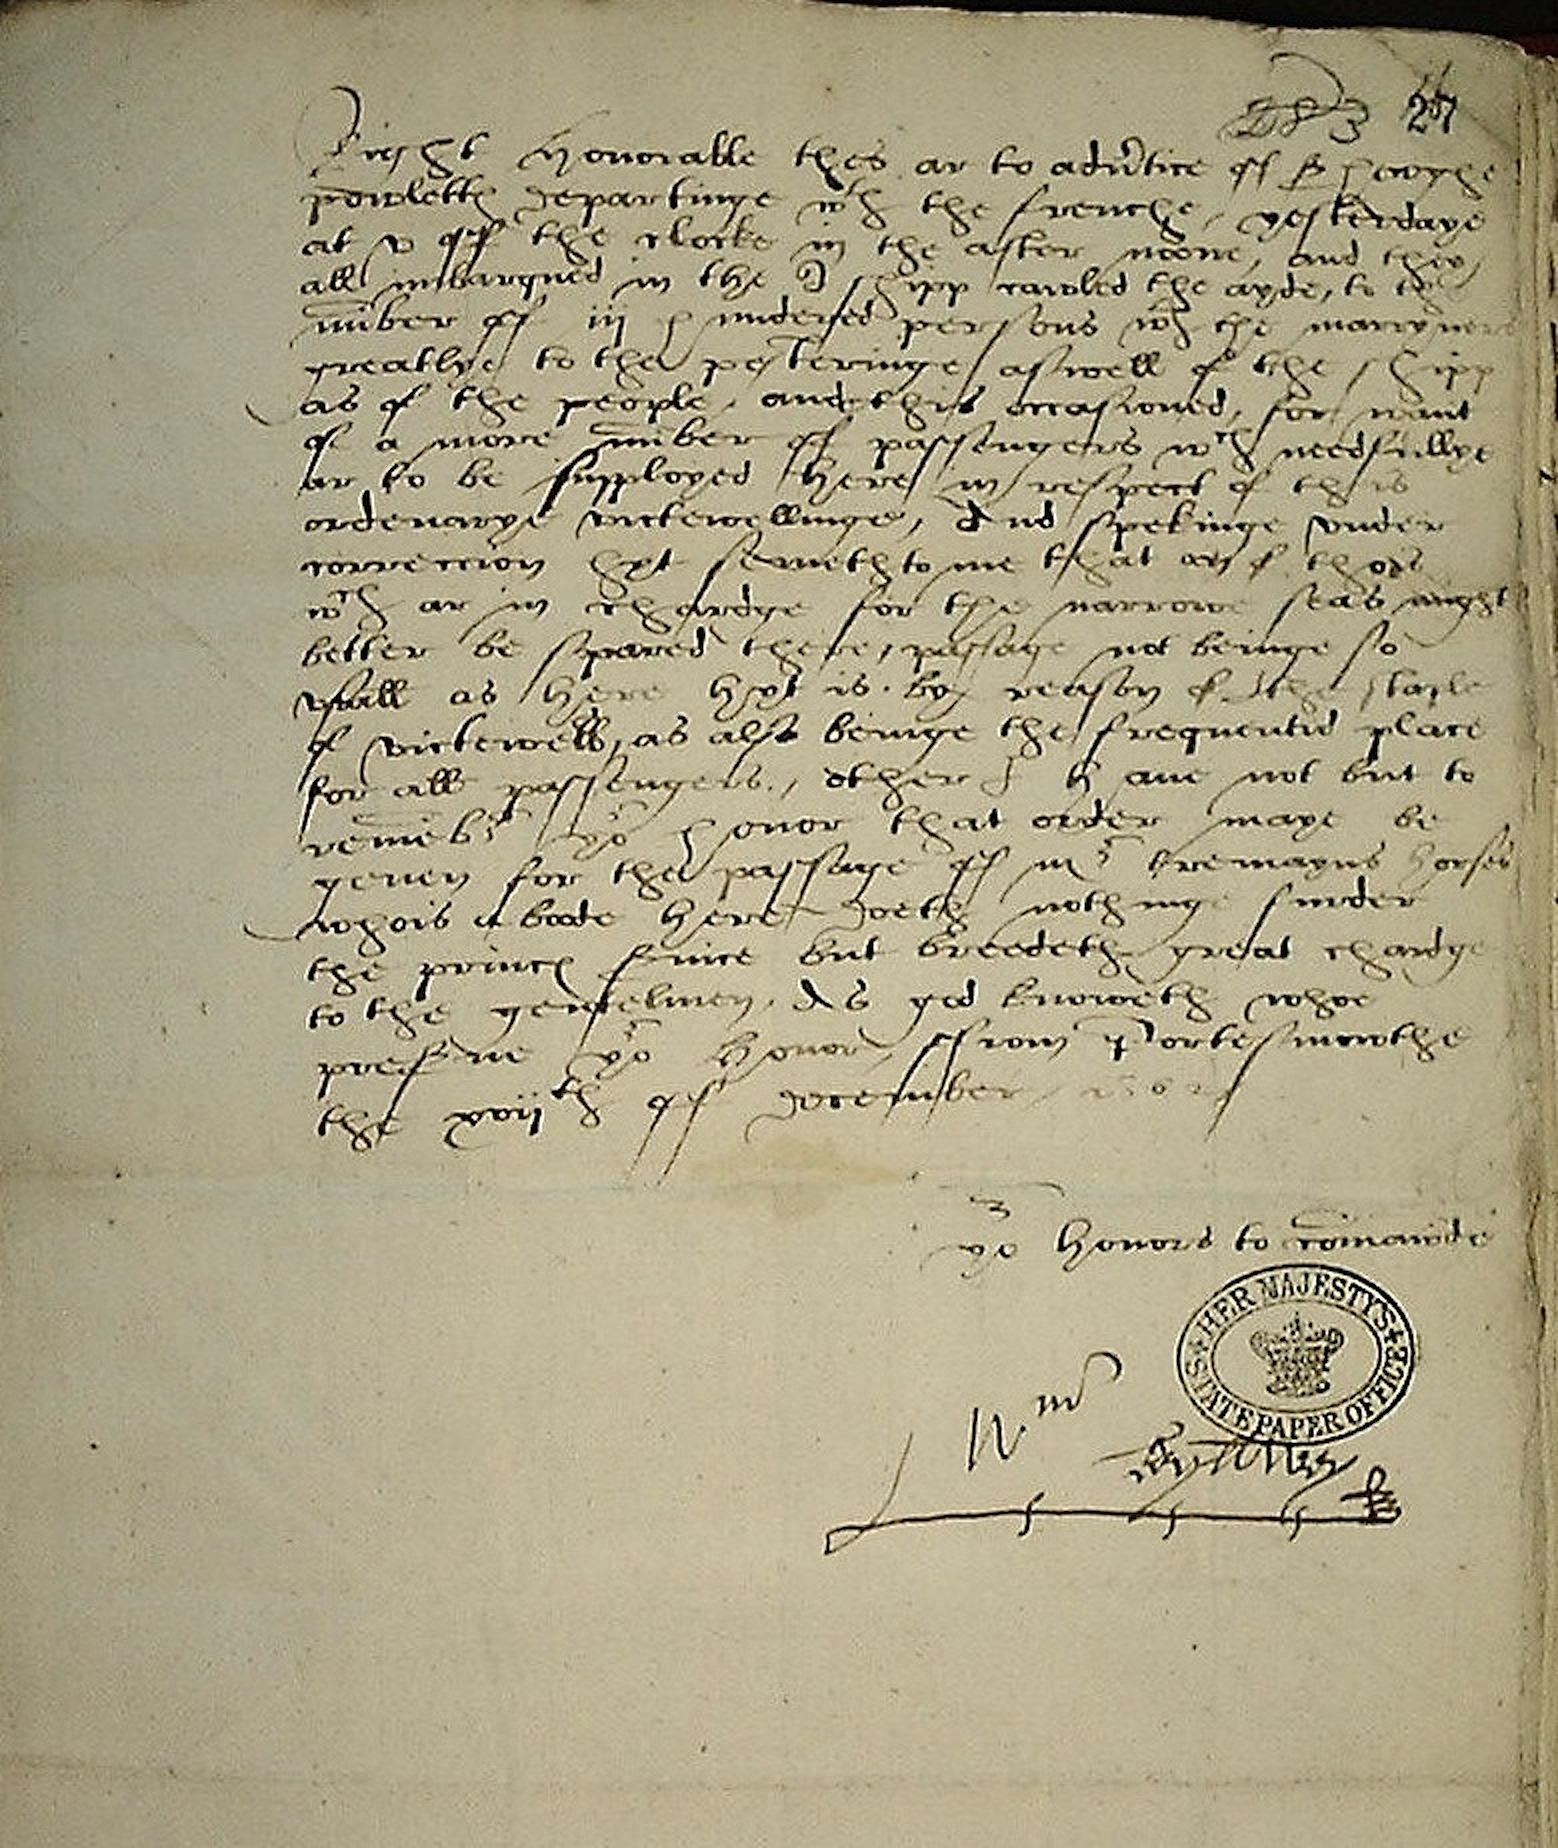 27
Right honorable thes ar to adu'tice of Sr hewghe
powlett departinge wth the frenche, yesterdaye
at v of the clocke in the after noone, and they
all imbarqued in the Q shipp cawled the ayde, to the
nu'ber of iij hunderyed persons wth the marryners
greatlye to the pesteringe aswell of the shipp
as of the people, and this occasioned, for want
of a more nu'ber of passengers wch needfullye
ar to be supployed here in respect of this
ordenarye victewellinge, And spekinge vnder
correccion hyt semeth to me that of thos
wch ar in chardge for the narrowe seas myght
better be spared there, passage not beinge so
vsuall as here hyt is. by reason of the staple
of victewells, as also beinge the frequentid place
for all passengers, other I haue not but to
remeb'r yor honor that order maye be
geuen for the passage of mr tremayns horses
whois abode here doeth nothinge furder
the princ s'uice but breedeth great chardge
to the gentelmen. As god knoweth whoe
pres'rue yor honor, ffrom Portesmowthe
the xvijth of december
yor honors to com'aunde
HER MAJESTY'S
STATE PAPER OFFICE
Wm